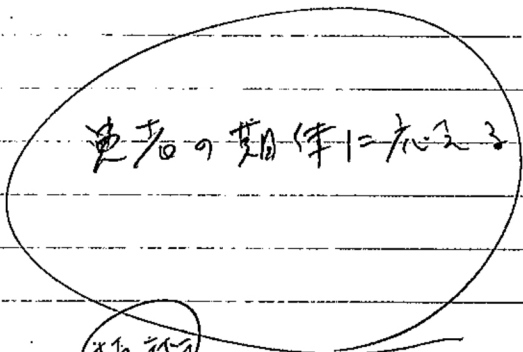 患者の期待に応える